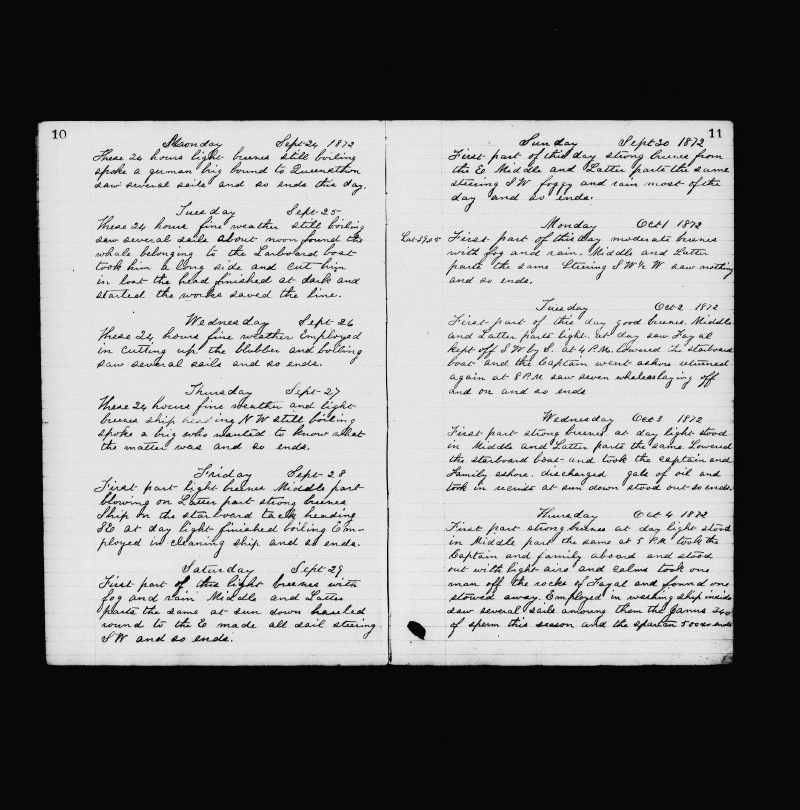 10
Monday Sept 24 1872
These 24 hours light breezes still boiling
spoke a german brig bound to Queenstton
saw several sails and so ends this day.
Tuesday Sept 25
These 24 hours fine weather still boiling
saw several sails about noon found the
whale belonging to the Larboard boat
took him a long side and cut him
in lost the head finished at dark and
started the works saved the line.
Wednesday Sept 26
These 24 hours fine weather Employed
in cutting up the blubber and boiling
saw several sails and so ends.
Thursday Sept 27
These 24 hours fine weather and light
breezes ship heading N W still boiling
spoke a brig who wanted to know what
the matter was and so ends.
Friday Sept 28
First part light breezes Middle part
blowing on Latter part strong breezes
Ship on the starboard tack heading
SE at day light finished boiling Em-
ployed in cleaning ship and so ends.
Saturday Sept 29
First part of this light breezes with
fog and rain Middle and Latter
parts the same at sun down hauled
round to the E made all sail steering
S W and so ends.
11
Sunday Sept 30 1872
First part of this day strong breezes from
the E Middle and Latter parts the same
steering S W foggy and rain most of the
day and so ends.
Monday Oct 1 1872
Lat 39,05 First part of this day moderate breezes
with fog and rain. Middle and Latter
parts the same Steering S W ½ W saw nothing
and so ends.
Tuesday Oct 2 1872
First part of this day good breezes. Middle
and Latter parts light. at day saw Fayal
kept off S W by S. at 4 P.M. lowered the starboard
boat and the Captain went ashore returned
again at 8 P.M saw seven whales laying off
and on and so ends
Wednesday Oct 3 1872
First part strong breezes at day light stood
in Middle and Latter parts the same. Lowered
the starboard boat and took the captain and
Family ashore. discharged gals of oil and
took in recruits at sun down stood out so ends.
Thursday Oct 4 1872
First part strong breezes at day light stood
in Middle part the same at 5 P.M. took the
Captain and family aboard and stood
out with light airs and calms took one
man off the rocks of Fayal and found one
stowed away. Employed in washing ship inside
saw several sails among them the Janus 240
of sperm this season and the spartan 500 so ends